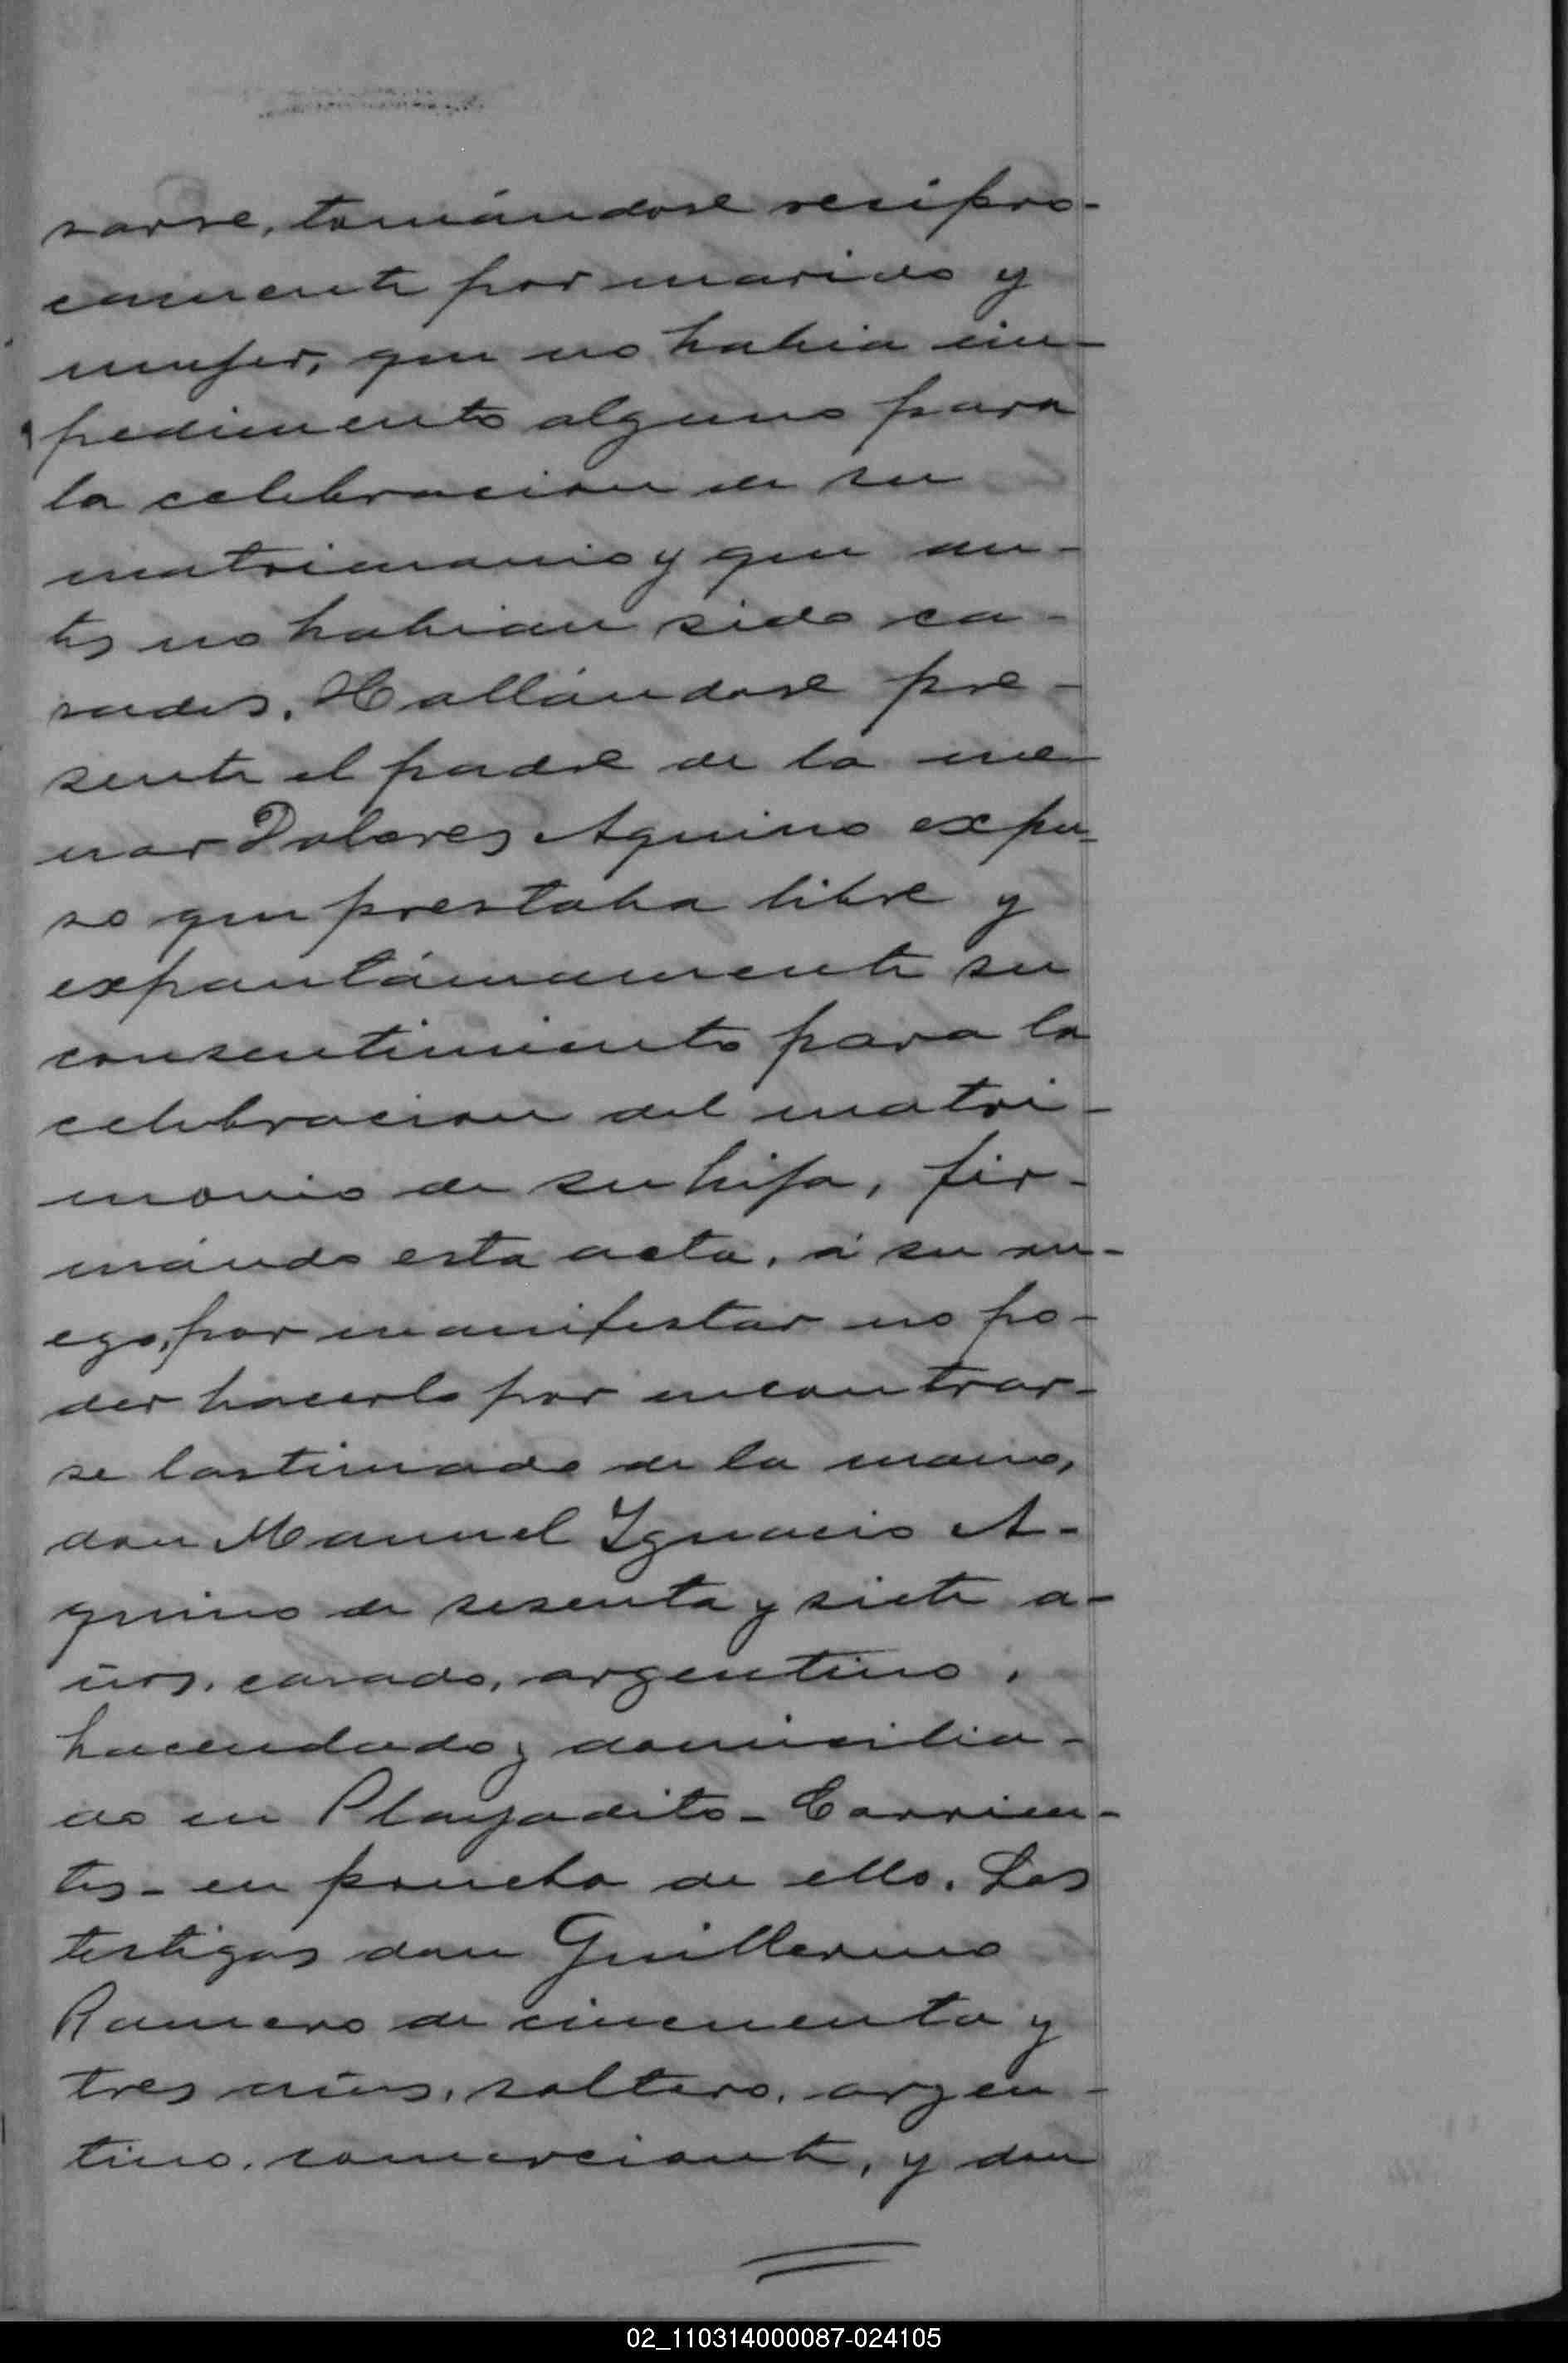 sarse, tomándose recipro-
camente por marido y
mujer, que no habia im-
pedimento alguno para
la celebracion de su
matrimonio y que an-
tes no habian sido ca-
sados. Hallándose pre-
sente el padre de la me
nor Dolores Aquino expu-
so que prestaba libre y
expontáneamente su
consentimiento para la
celebracion del matri-
monio de su hija, fir-
mándo esta acta, á su ru-
ego, por manifestar no po-
der hacerlo por encontrar-
se lastimado de la mano,
don Manuel Ignacio A-
quino de sesenta y siete a-
ños, casado, argentino,
hacendado y domicilia-
do en Playadito - Corrien-
tes - en prueba de ello. Los
testigos don Guillermo
Romero de cincuenta y
tres años, soltero, argen-
tino, comerciante, y don
02_110314000087-024105